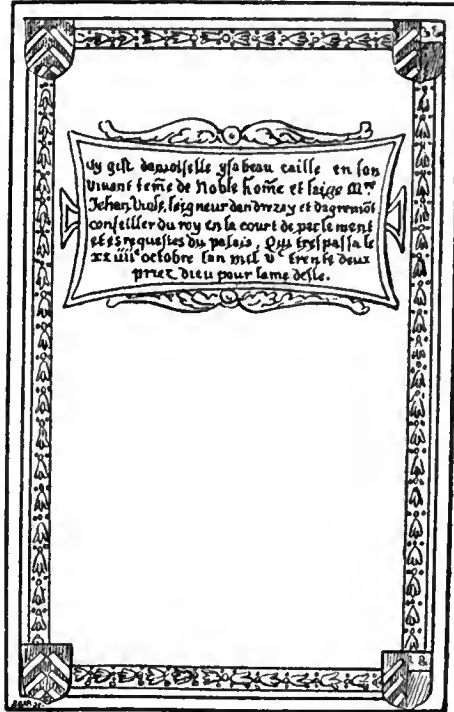 Cy gist damoiselle ysabeau caille en son
vivant fem̄e de Noble hom̄e et saige M.re
Jehan seigneur dandrezay et dagremōt
conseiller du roy en la court de parlement
et es requestes du palais, Qui trespassa le
xxiiiie octobre lan mil vc trente deux
priez dieu pour lame delle.